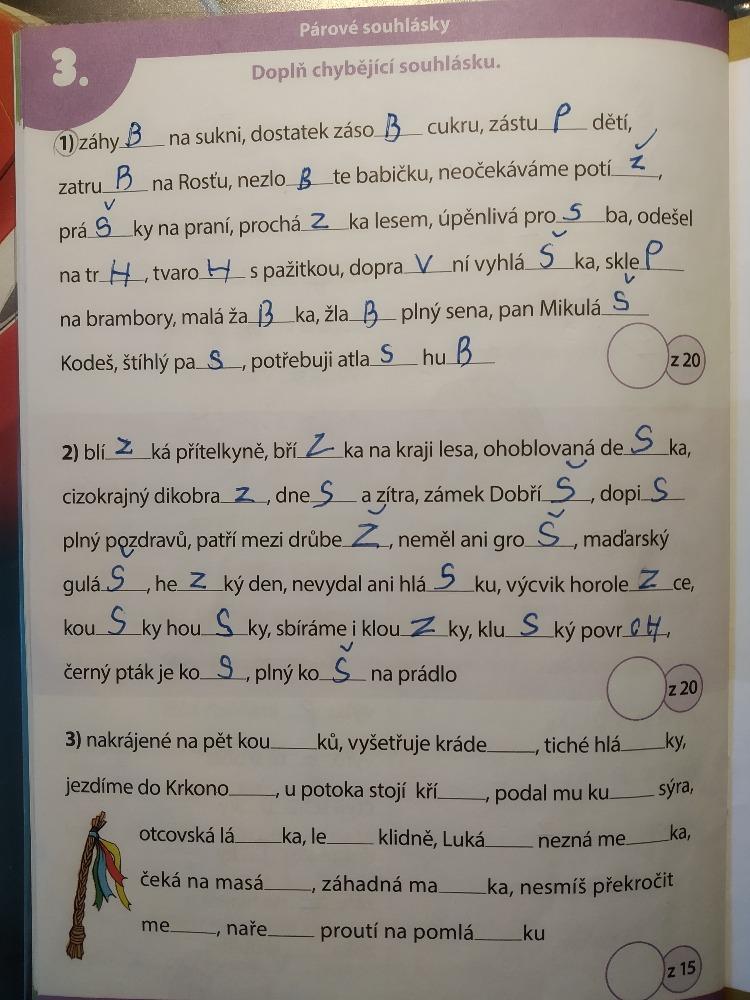 Párové souhlásky
3.
Doplň chybějící souhlásku.
1) záhyB na sukni, dostatek zásoB cukru, zástuP dětí,
zatruB na Rosťu, nezloBte babičku, neočekáváme potíŽ,
práŠky na praní, procháZka lesem, úpěnlivá proSba, odešel
na trH, tvaroH s pažitkou, dopraVní vyhláŠka, skleP
na brambory, malá žaBka, žlaB plný sena, pan MikuláŠ
Kodeš, štíhlý paS, potřebuji atlaS huB
z 20
2) blíZká přítelkyně, bříZka na kraji lesa, ohoblovaná deSka,
cizokrajný dikobraZ, dneS a zítra, zámek DobříŠ, dopiS
plný pozdravů, patří mezi drůbeŽ, neměl ani groŠ, maďarský
guláŠ, heZký den, nevydal ani hláSku, výcvik horoleZce,
kouSky houSky, sbíráme i klouZky, kluSký povrCH,
černý pták je koS, plný koŠ na prádlo
z 20
3) nakrájené na pět kou____ků, vyšetřuje kráde____, tiché hlá____ky,
jezdíme do Krkono____, u potoka stojí kří____, podal mu ku____ sýra,
otcovská lá____ka, le____ klidně, Luká____ nezná me____ka,
čeká na masá____, záhadná ma____ka, nesmíš překročit
me____, naře____ proutí na pomlá____ku
z 15